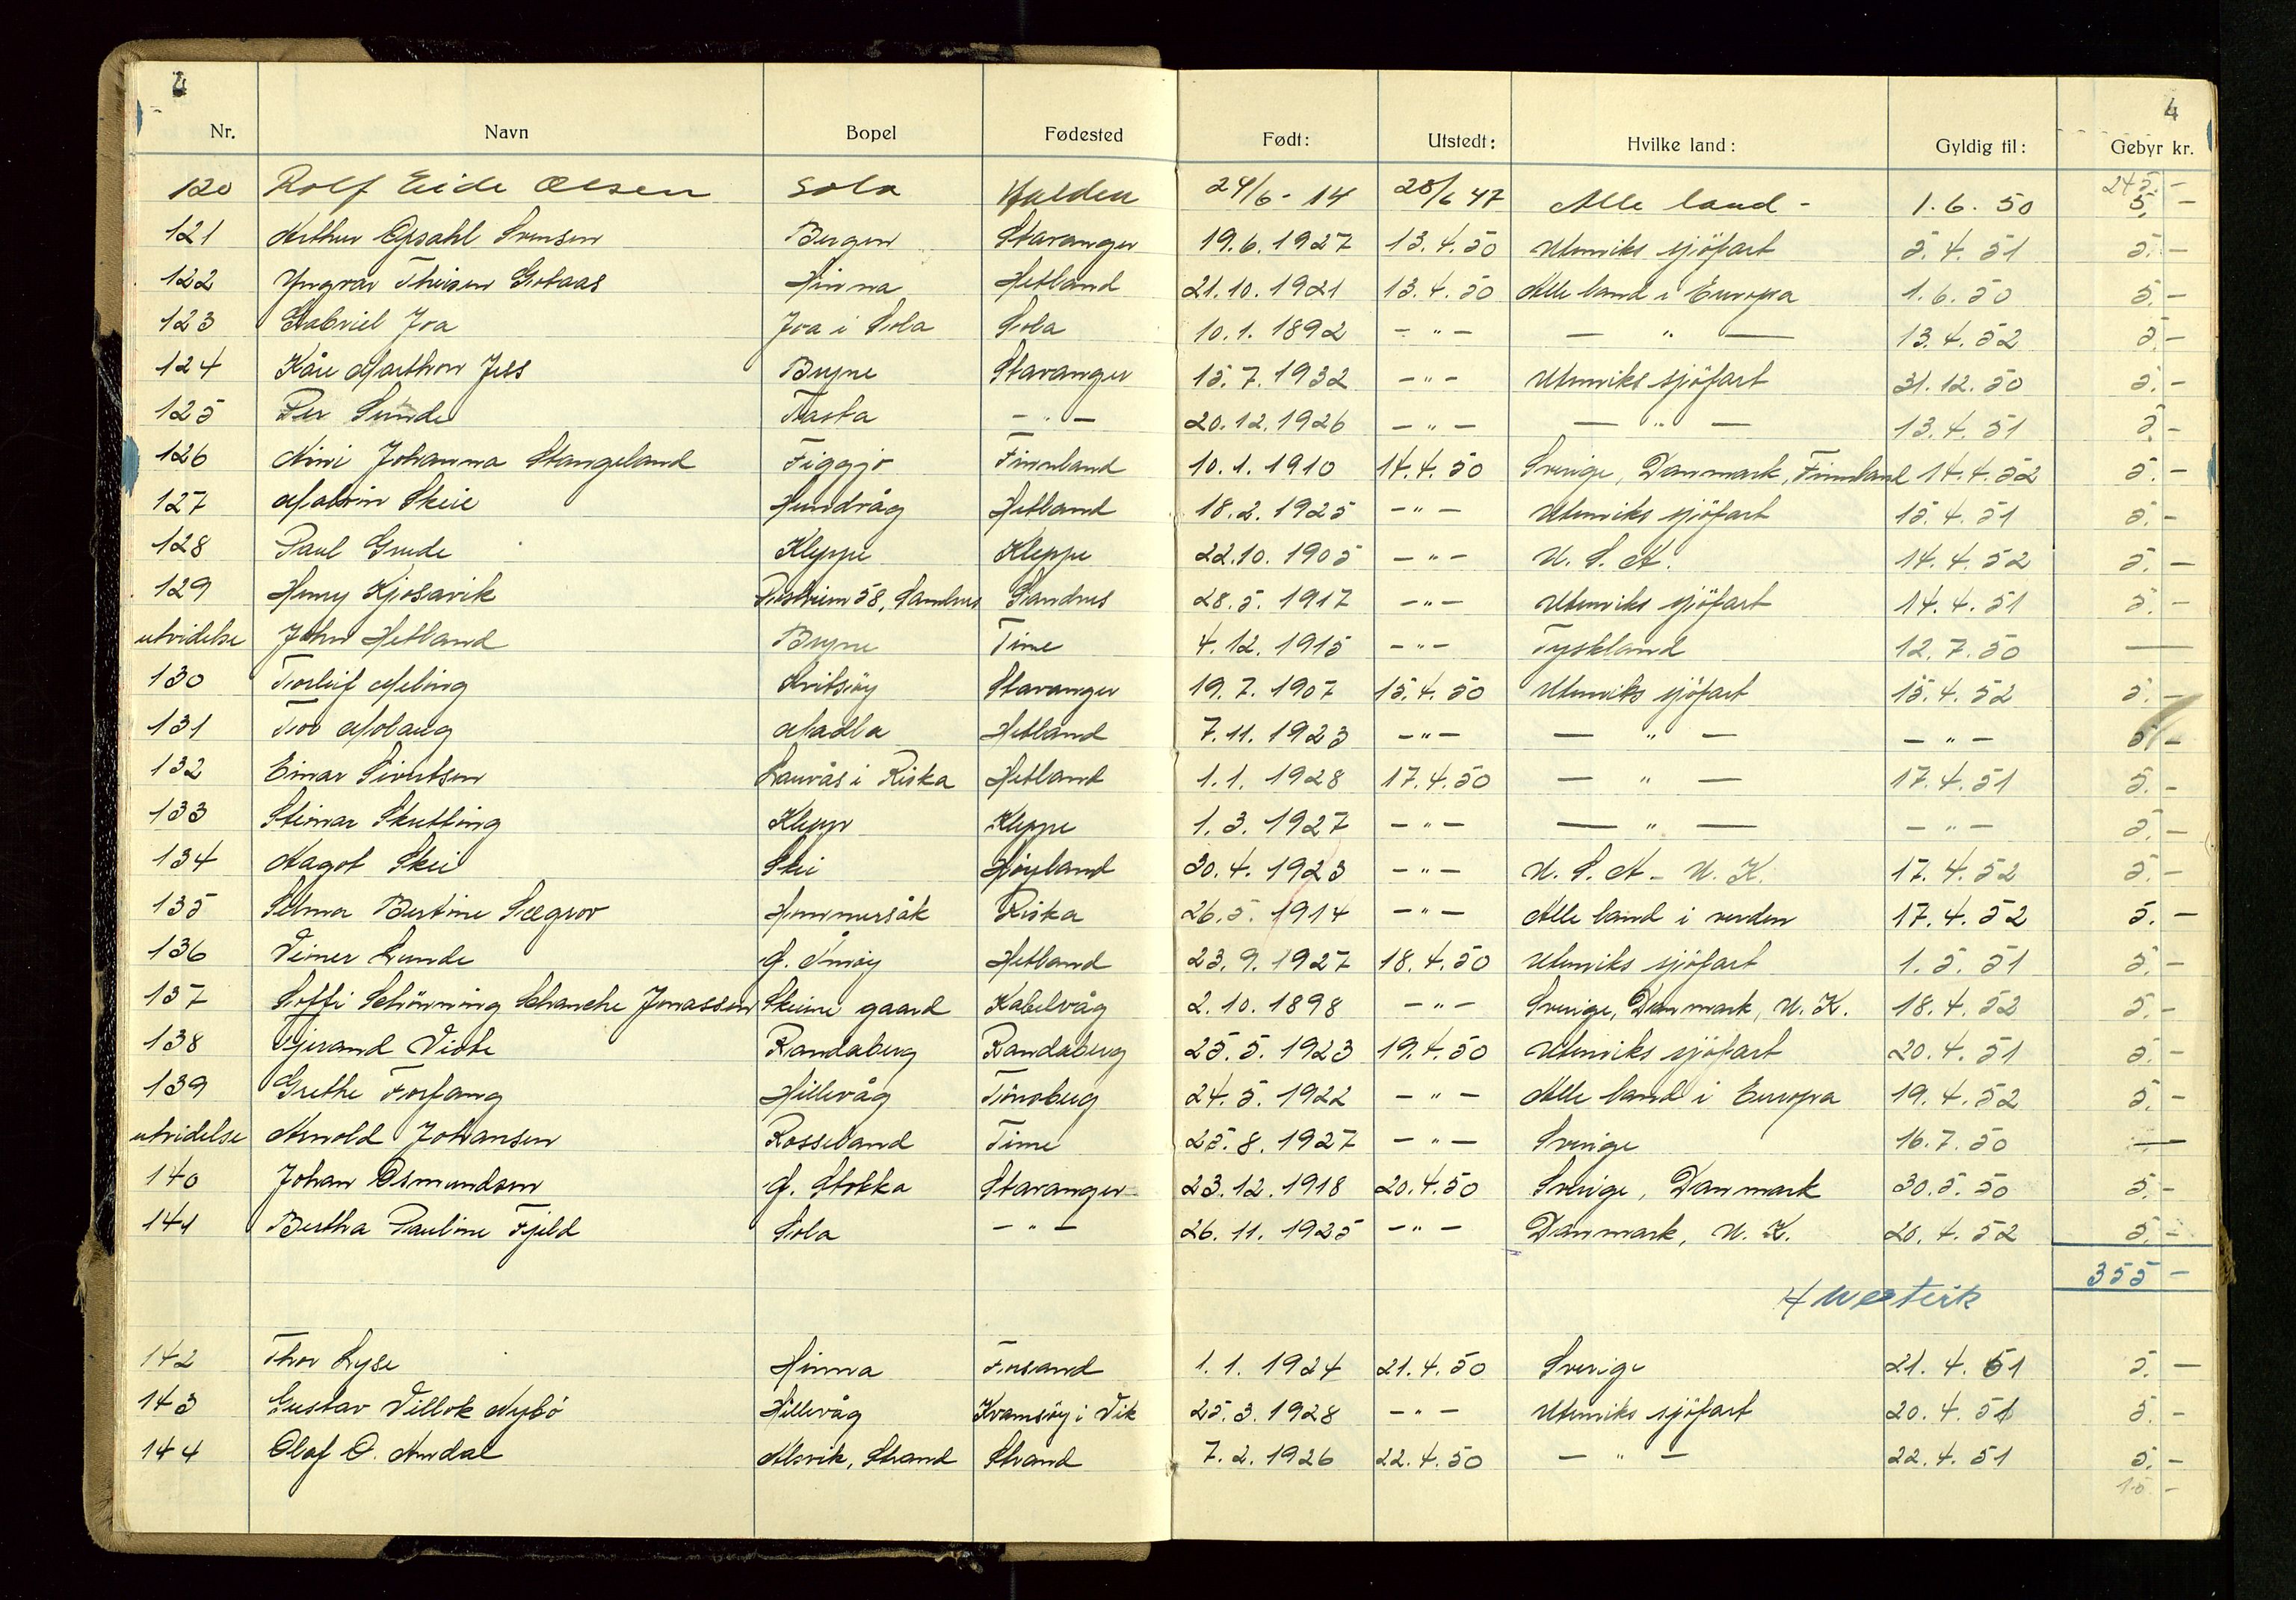 4 4
Nr. Navn Bopel Fødested Født: Utstedt: Hvilke land: Gyldig til: Gebyr kr.
245.-
120 Rolf Eide Olsen Sola Halden 24/6-14 28/6 47 Alle land - 1.6.50 5.-
121 Arthur Opsahl Svensen Bergen Stavanger 19.6.1927 13.4.50 Utenriks sjöfart 5.4.51 5.-
122 Yngvar Theisen Hinna Hetland 21.10.1921 13.4.50 Alle land i Europa 1.6.50 5.-
123 Gabriel Joa Joa i Sola Sola 10.1.1892 - " - - " - 13.4.52 5.-
124 Kåre Marthon Jess Bryne Stavanger 15.7.1932 - " - Utenriks sjöfart 31.12.50 5.-
125 Per Sunde Tasta - " - 20.12.1926 - " - - " - 13.4.51 5.-
126 Aini Johanna Stangeland Figgjo Finnland 10.1.1910 14.4.50 Sverige, Danmark, Finnland 14.4.52 5.-
127 Malvin Skeie Hundvåg Hetland 18.2.1925 - " - Utenriks sjöfart 15.4.51 5.-
128 Paul Grude Kleppe Kleppe 22.10.1905 - " - U.S.A. 14.4.52 5.-
129 Henry Kjosavik 58, Sandnes Sandnes 28.5.1917 - " - Utenriks sjöfart 14.4.51 5.-
utvidelse John Hetland Bryne Time 4.12.1915 - " - Tyskland 12.7.50 —
130 Torleif Meling Kvitsöy Stavanger 19.7.1907 15.4.50 Utenriks sjöfart 15.4.52 5.-
131 Tor Molaug Madla Hetland 7.11.1923 - " - - " - - " - 5.-
132 Einar Sivertsen Lauvås i Riska Hetland 1.1.1928 17.4.50 - " - 17.4.51 5.-
133 Steinar Skretting Klepp Kleppe 1.3.1927 - " - - " - - " - 5.-
134 Aagot Skei Skei Höyland 30.4.1923 - " - U.S.A - U.K. 17.4.52 5.-
135 Selma Bertine Sægrov Hommersåk Riska 26.5.1914 - " - Alle land i verden 17.4.52 5.-
136 Veiner Lunde Hetland 23.9.1927 18.4.50 Utenriks sjöfart 1.5.51 5.-
137 Soffi Schönning Schanche Jonassen Skeime gaard Kabelvåg 2.10.1898 - " - Sverige, Danmark, U.K. 18.4.52 5.-
138 Tjerand Viste Randaberg Randaberg 25.5.1923 19.4.50 Utenriks sjöfart 20.4.51 5.-
139 Grethe Forfang Hillevåg Tönsberg 24.5.1922 - " - Alle land i Europa 19.4.52 5.-
utvidelse Arnold Johansen Rosseland Time 25.8.1927 - " - Sverige 16.7.50 —
140 Johan Osmundsen G. Stokka Stavanger 23.12.1918 20.4.50 Sverige, Danmark 30.5.50 5.-
141 Bertha Pauline Fjeld Sola - " - 26.11.1925 - " - Danmark, U.K. 20.4.52 5.-
355 -
142 Thor Lyse Hinna Forsand 1.1.1924 21.4.50 Sverige 21.4.51 5.-
143 Gustav Villok Nybö Hillevåg Kvamsöy i Vik 25.3.1928 - " - Utenriks sjöfart 20.4.51 5.-
144 Olaf O. Amdal Alsvik, Strand Strand 7.2.1926 22.4.50 - " - 22.4.51 5.-
15.-